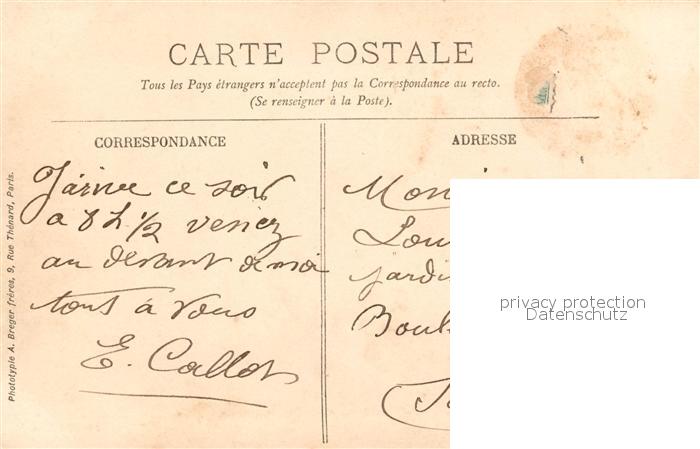 CARTE POSTALE
Tous les Pays étrangers n'acceptent pas la Correspondance au recto.
(Se renseigner à la Poste).
CORRESPONDANCE
J'arrive ce soir
a 8 h 1/2 venez
au devant de moi
tout à vous
E. Callot
ADRESSE
Mon
Lou
jardi
Boul
privacy protection
Datenschutz
Phototypie A. Breger frères, 9, Rue Thénard, Paris.